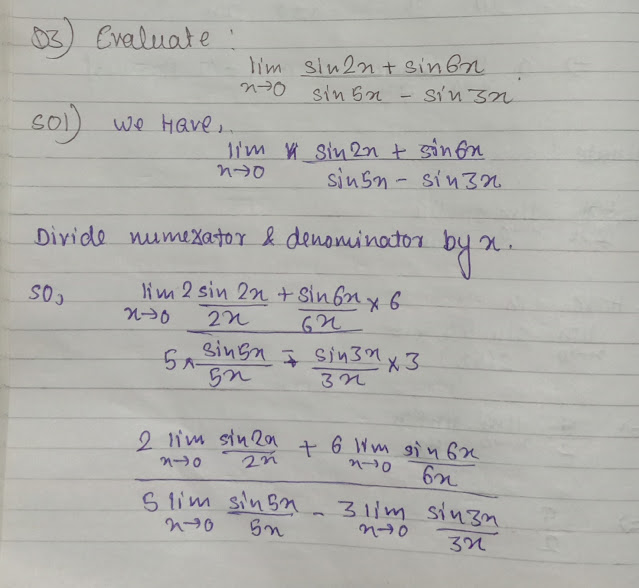 Q3) Evaluate :
lim x→0 (sin2x + sin6x)/(sin5x − sin3x).
Sol) We Have,
lim x→0 (sin2x + sin6x)/(sin5x − sin3x)
Divide numerator & denominator by x.
So, lim x→0 (2 sin 2x/2x + sin6x/6x × 6)/(5 × sin5x/5x − sin3x/3x × 3)
(2 lim x→0 sin2x/2x + 6 lim x→0 sin6x/6x)/(5 lim x→0 sin5x/5x − 3 lim x→0 sin3x/3x)